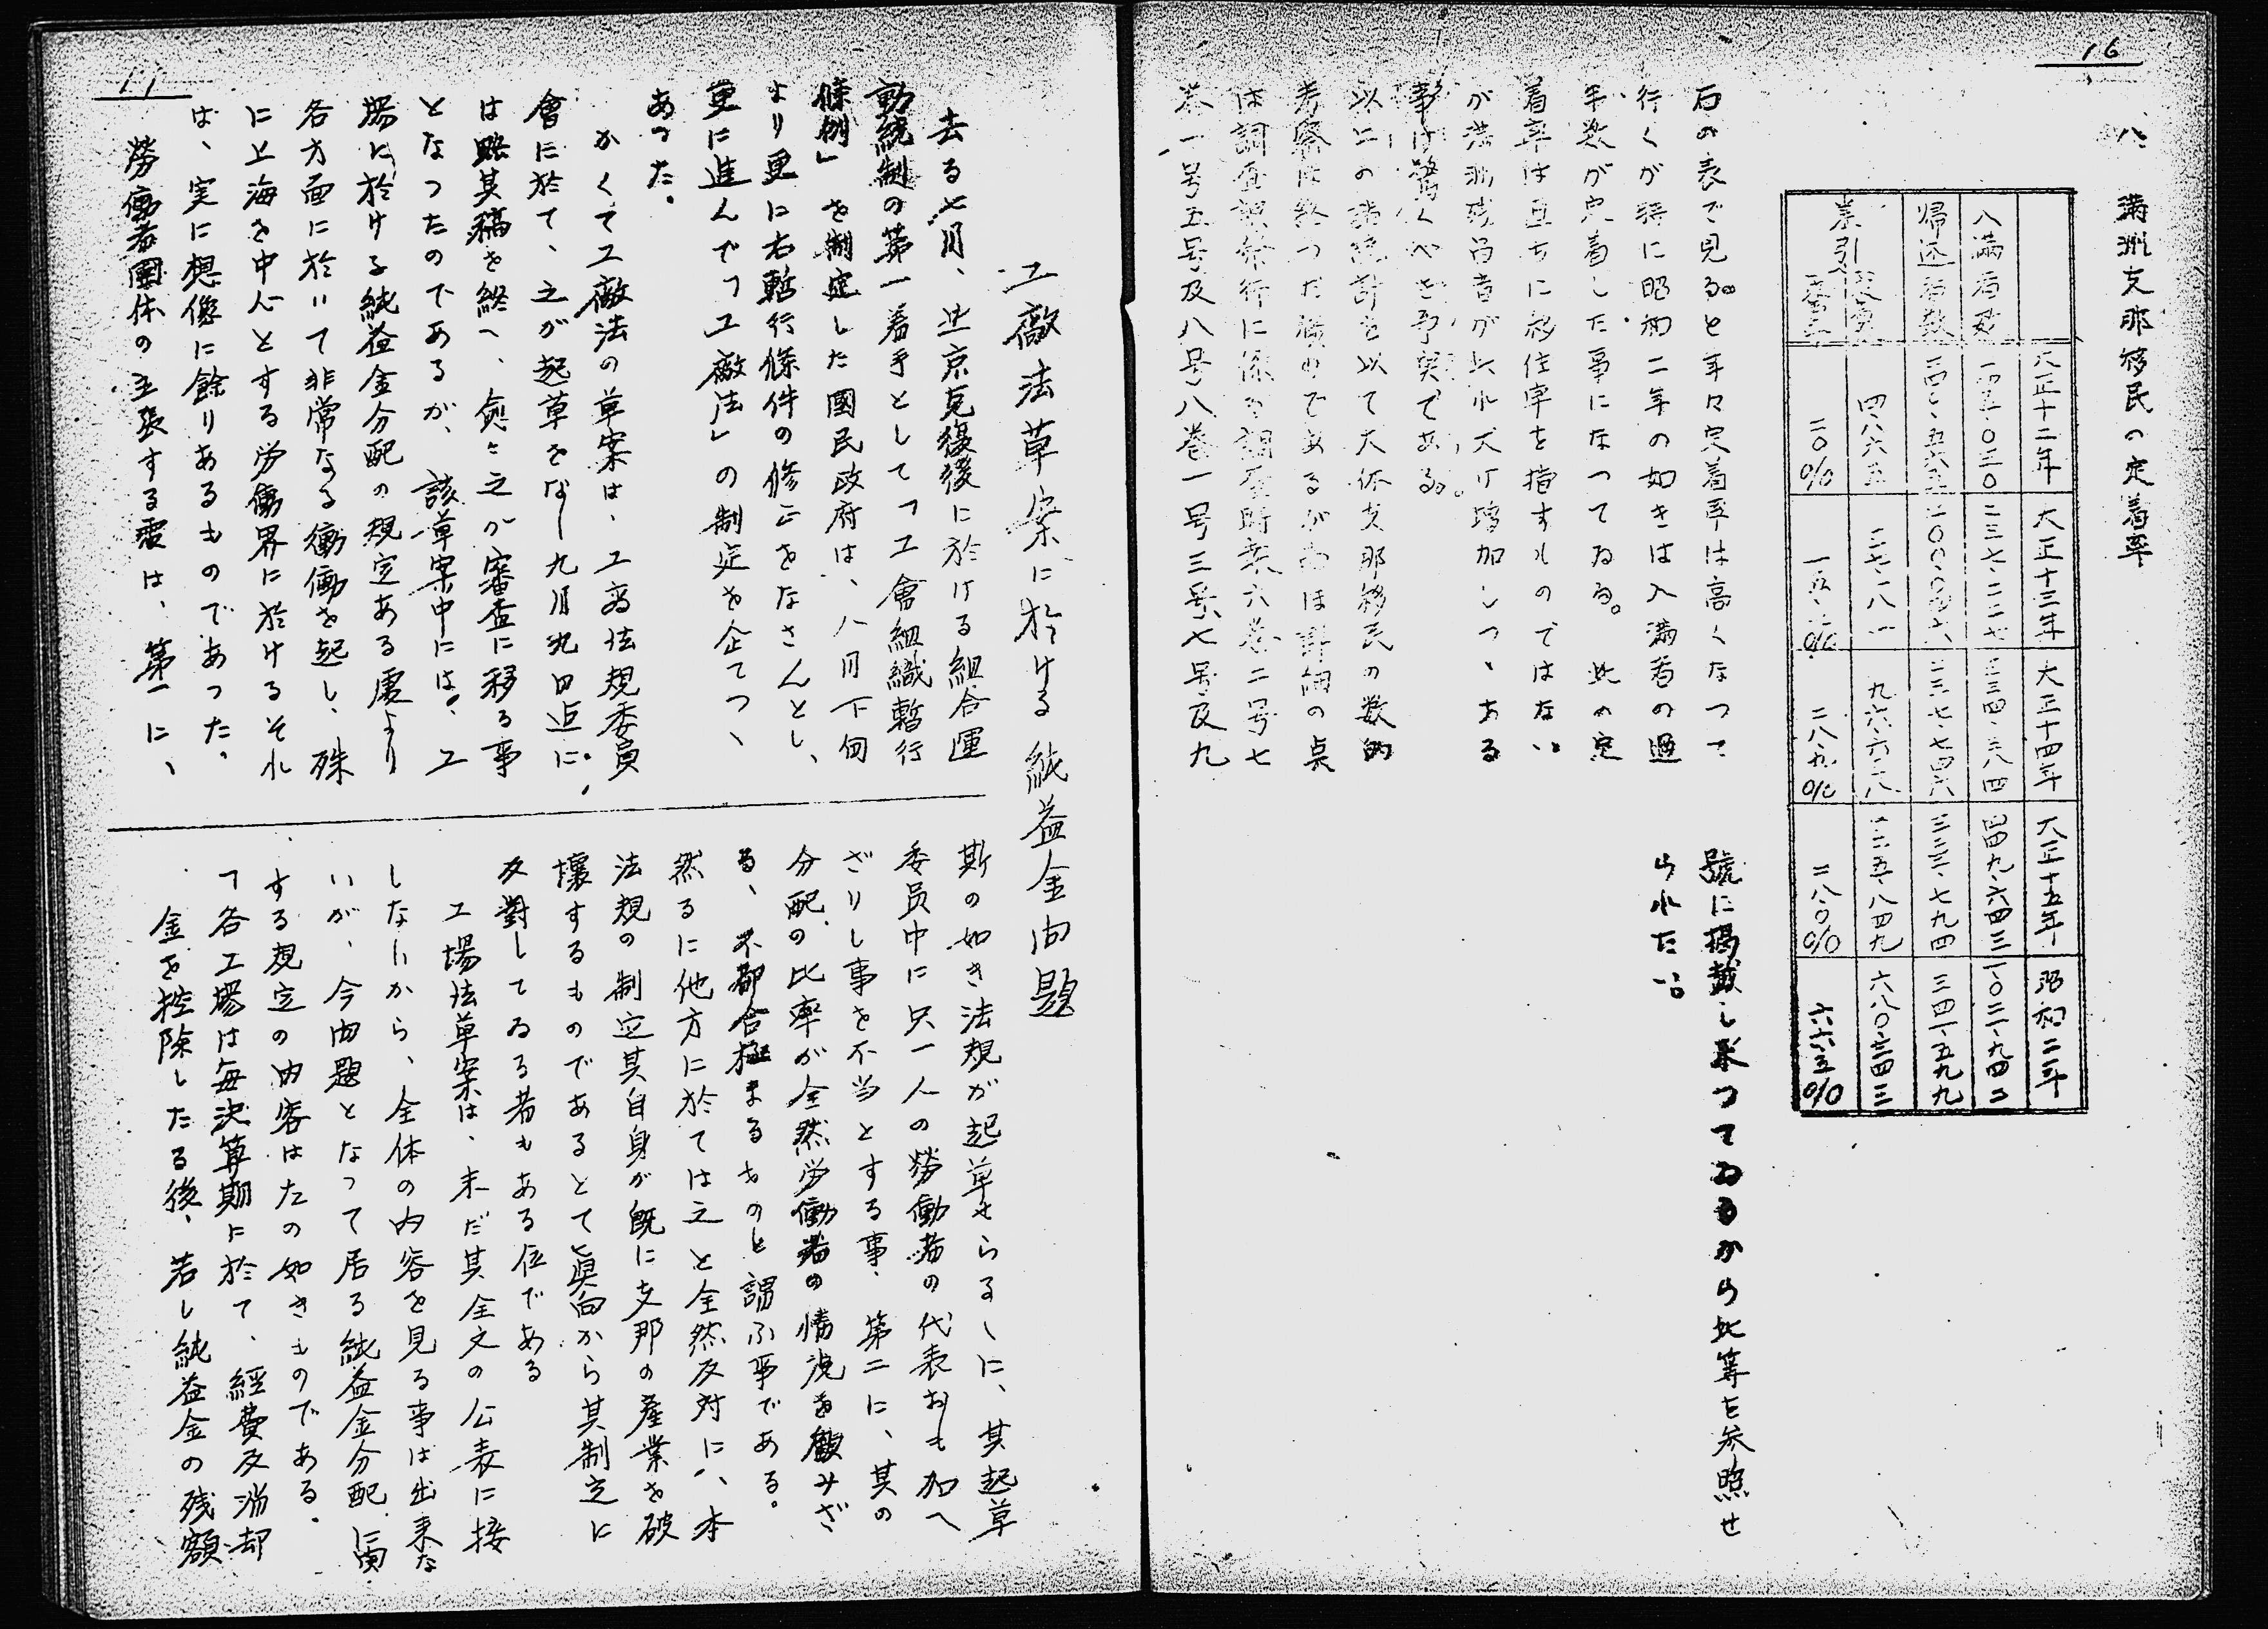 16
八、満洲支那移民の定着率
大正十二年 大正十三年 大正十四年 大正十五年 昭和二年
入満者数 二三七、二二七 四四九、六四三 一、〇二一、九四二
帰還者数 二四〇、五六五 二〇〇、〇四六 二三七、七四六 三二三、七九四 三四一、五九九
差引 四、八六五 九六、六三八 一二五、八四九 六八〇、三四三
二〇% 二八、九% 二八、〇% 六六、五%
右の表で見ると年々定着率は高くなつて
行くが特に昭和二年の如きは入満者の過
半数が定着した事になつてゐる。此の定
着率は直ちに移住率を指すものではない
が満洲残留者が此れ丈け増加しつゝある
事は驚くべき事実である。
以上の諸統計を以て大体支那移民の数的
考察は終つた積りであるが尚ほ詳細の点
は調査課発行に係る調査時報六巻二号七
巻一号五号及八号、八巻一号三号、七号及九
號に掲載し来つてゐるから此等を参照せ
られたい。
工廠法草案に於ける純益金問題
去る七月、北京克復後に於ける組合運
動統制の第一着手として「工會組織暫行
條例」を制定した國民政府は、八月下旬
より更に右暫行條件の修正をなさんとし、
更に進んで「工廠法」の制定を企てつゝ
あつた。
かくて工廠法の草案は、工商法規委員
會に於て、之が起草をなし九月九日迄に
は略其稿を終へ、愈々之が審査に移る事
となつたのであるが、該草案中には、工
場に於ける純益金分配の規定ある處より
各方面に於いて非常なる衝動を起し、殊
に上海を中心とする労働界に於けるそれ
は、実に想像に餘りあるものであつた。
勞働者團体の主張する處は、第一に、
斯の如き法規が起草せらるゝに、其起草
委員中に只一人の勞働者の代表おも加へ
ざりし事を不当とする事、第二に、其の
分配の比率が全然労働者の情況を顧みざ
る、不都合極まるものと謂ふ事である。
然るに他方に於ては之と全然反対に、本
法規の制定其自身が既に支那の産業を破
壊するものであるとて真向から其制定に
反對してゐる者もある位である
工場法草案は、未だ其全文の公表に接
しないから、全体の内容を見る事は出来な
いが、今問題となつて居る純益金分配に関
する規定の内容は左の如きものである。
「各工場は毎決算期に於て、経費及消却
金を控除したる後、若し純益金の残額
17